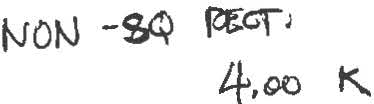 NON-SQ RECT.
4.00 K